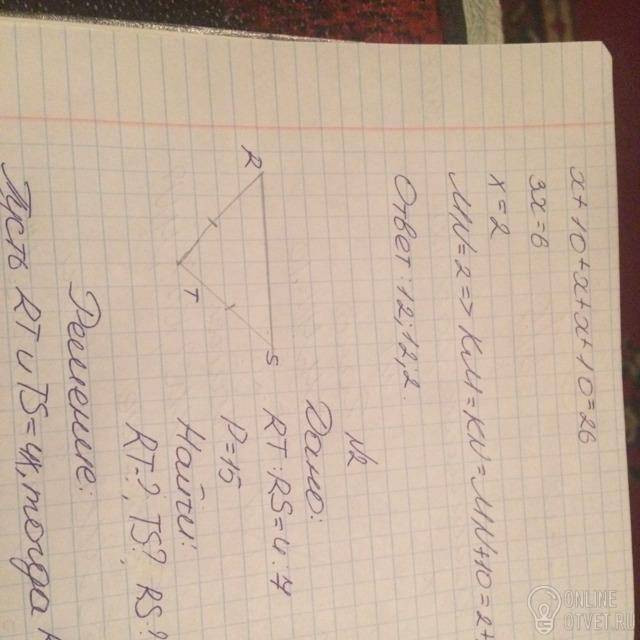 x+10+x+x+10=26
3x=6
x=2
MN=2=>KM=KN=MN+10=2+
Ответ: 12; 12; 2.
№2
R
S
T
Дано:
RT:RS=4:7
P=15
Найти:
RT-?, TS?, RS-?
Решение:
Пусть RT и TS=4x, тогда
ONLINE
OTVET.RU